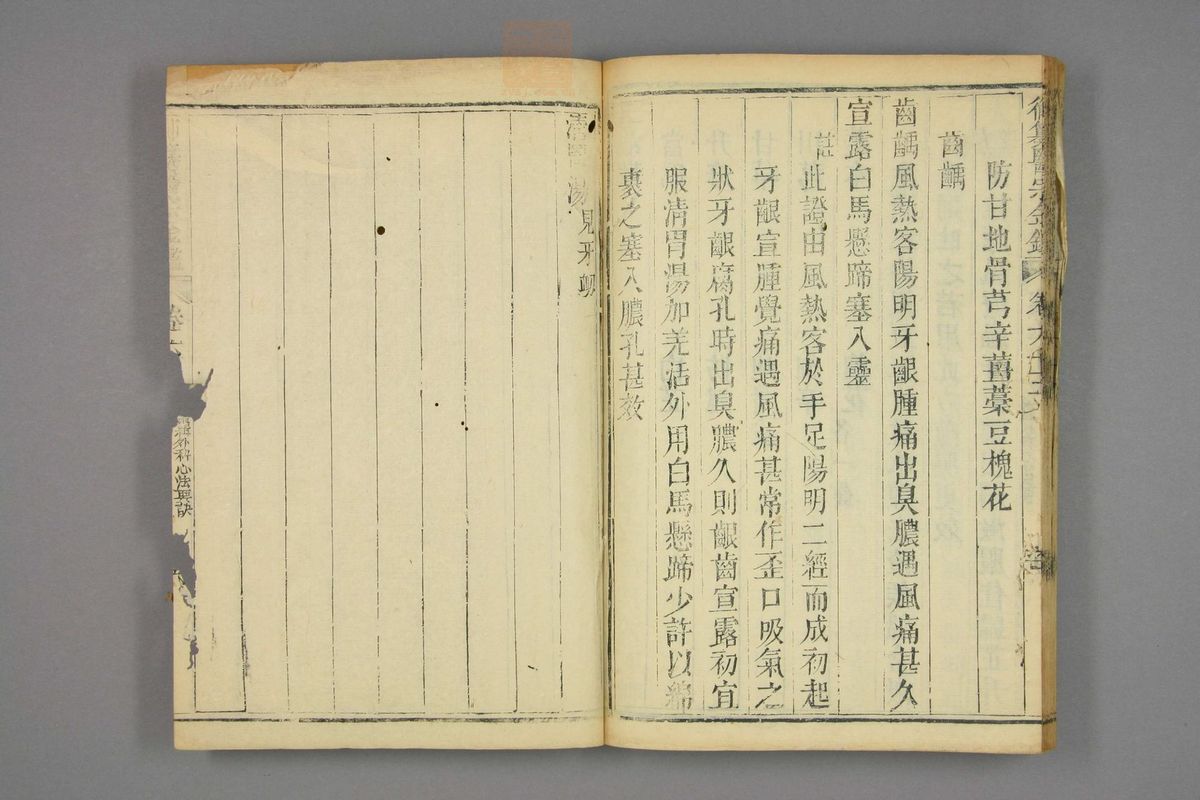 御纂醫宗金鑑 卷六十五
防甘地骨芎辛薑藁豆槐花
齒齲
齒齲風熱客陽明牙齦腫痛出臭膿遇風痛甚久
宣露白馬懸蹄塞入靈
註此證由風熱客於手足陽明二經而成初起
牙齦宣腫覺痛遇風痛甚常作歪口吸氣之
狀牙齦腐孔時出臭膿久則齦齒宣露初宜
服清胃湯加羌活外用白馬懸蹄少許以綿
裹之塞入膿孔甚效
清胃湯見牙衄
卷六
編輯外科心法要訣